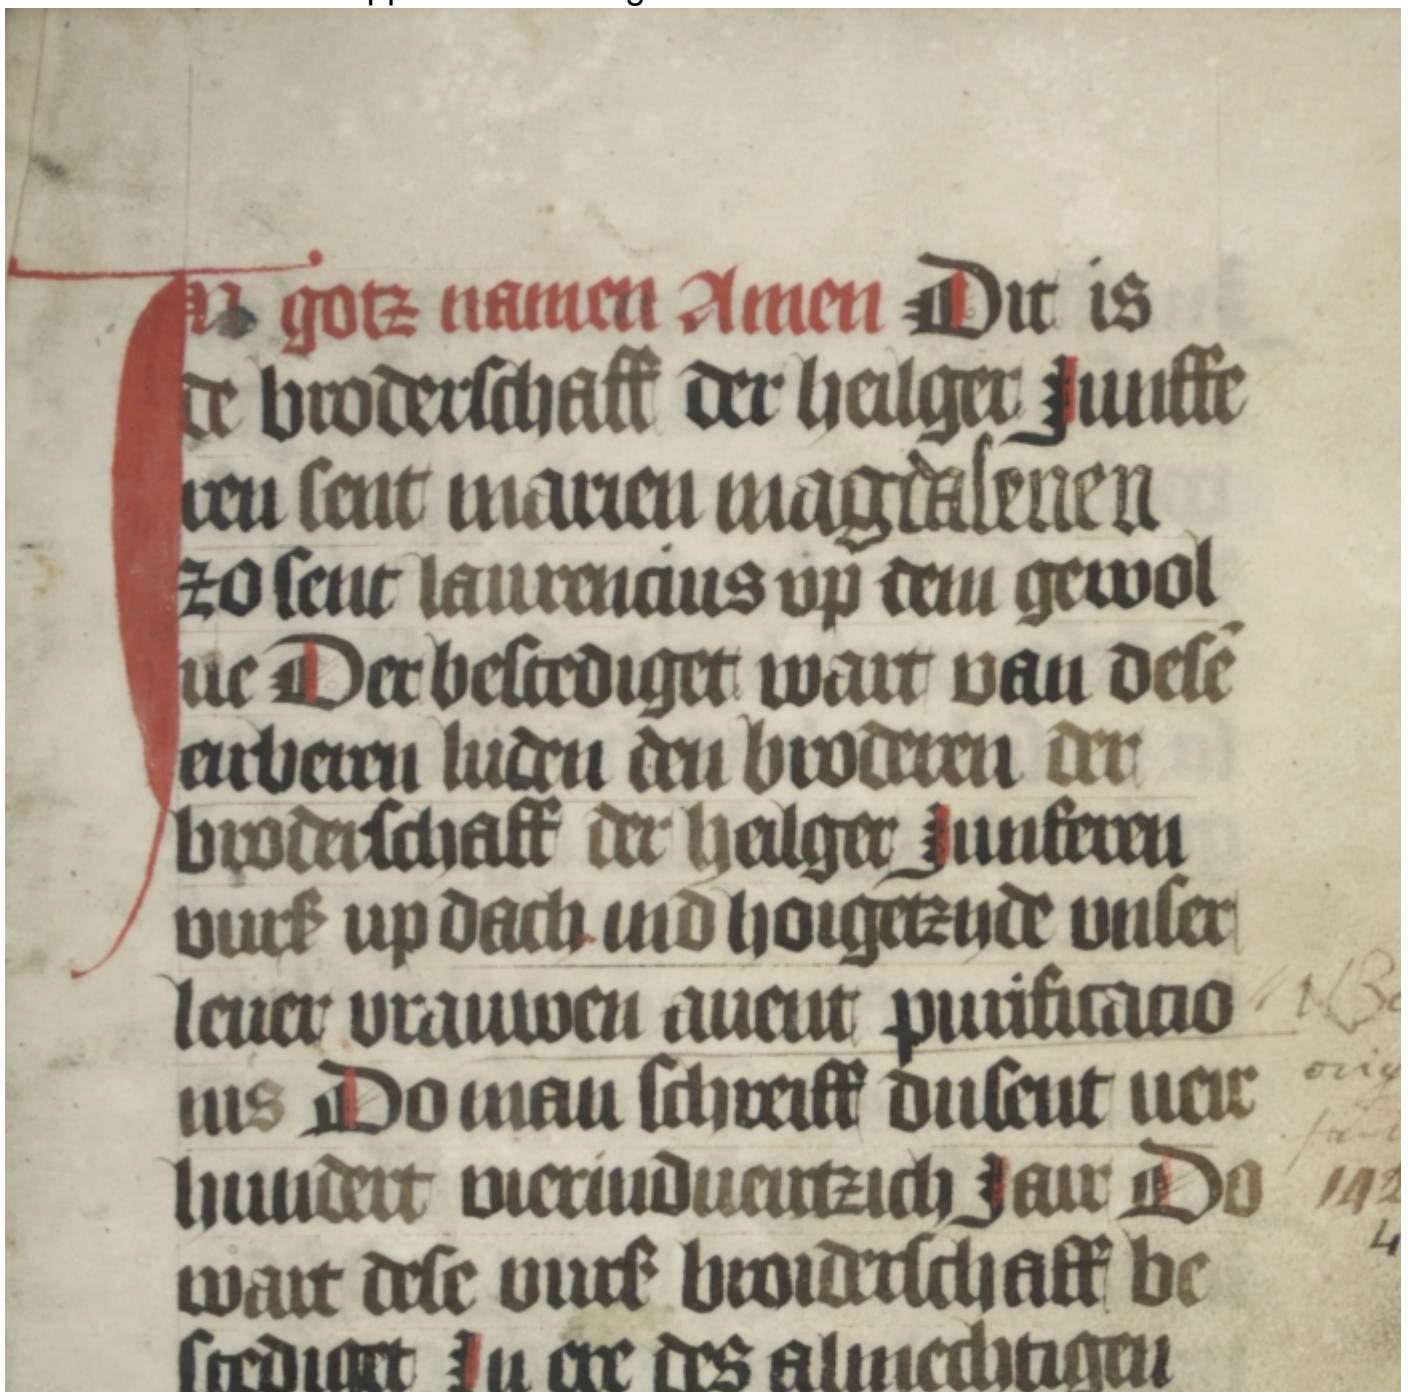 In gotz namen Amen Dit is
de broderschaff der heilger Junffe
ren sent marien magdalenen
zo sent laurencius vp dem gewol
ue Der bestediget wart van desē
eirberen luden den broderen der
broderschaff der heilger Junferen
vurß up dach ind hoigetzyde vnser
leuer vrauwen auent purificatio
nis Do man schreiff dusent ueir
hundert vierinduentzich Jair Do
wart dese vurß broiderschaff be
stediget In ere des almechtigen